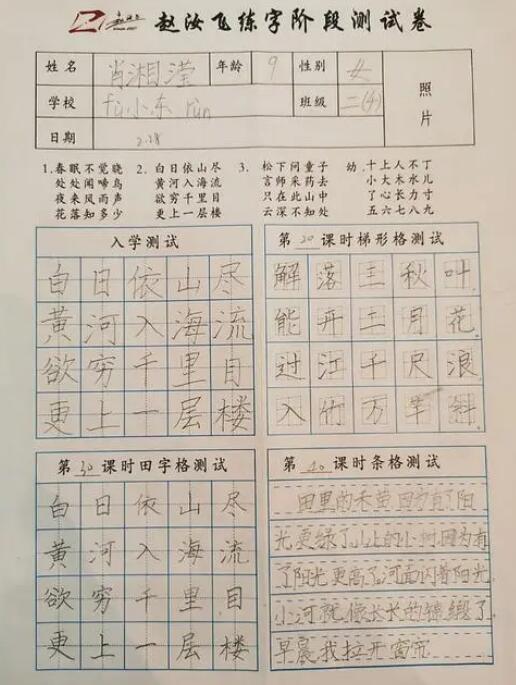 赵汝飞练字阶段测试卷
姓名 肖湘滢 年龄 9 性别 女 照片
学校 fǔ小东rùn 班级 二(4)
日期 2.28
1.春眠不觉晓 2.白日依山尽 3.松下问童子 幼.十上人不丁
处处闻啼鸟 黄河入海流 言师采药去 小大木水儿
夜来风雨声 欲穷千里目 只在此山中 了心长力寸
花落知多少 更上一层楼 云深不知处 五六七八九
入学测试
白日依山尽
黄河入海流
欲穷千里目
更上一层楼
第20课时梯形格测试
解落三秋叶
能开二月花
过江千尺浪
入竹万竿斜
第30课时田字格测试
白日依山尽
黄河入海流
欲穷千里目
更上一层楼
第40课时条格测试
田里的禾苗因为有了阳
光更绿了山上的小树因为有
了阳光更高了河面闪着阳光
小河就像长长的锦缎了
早晨我拉开窗帘